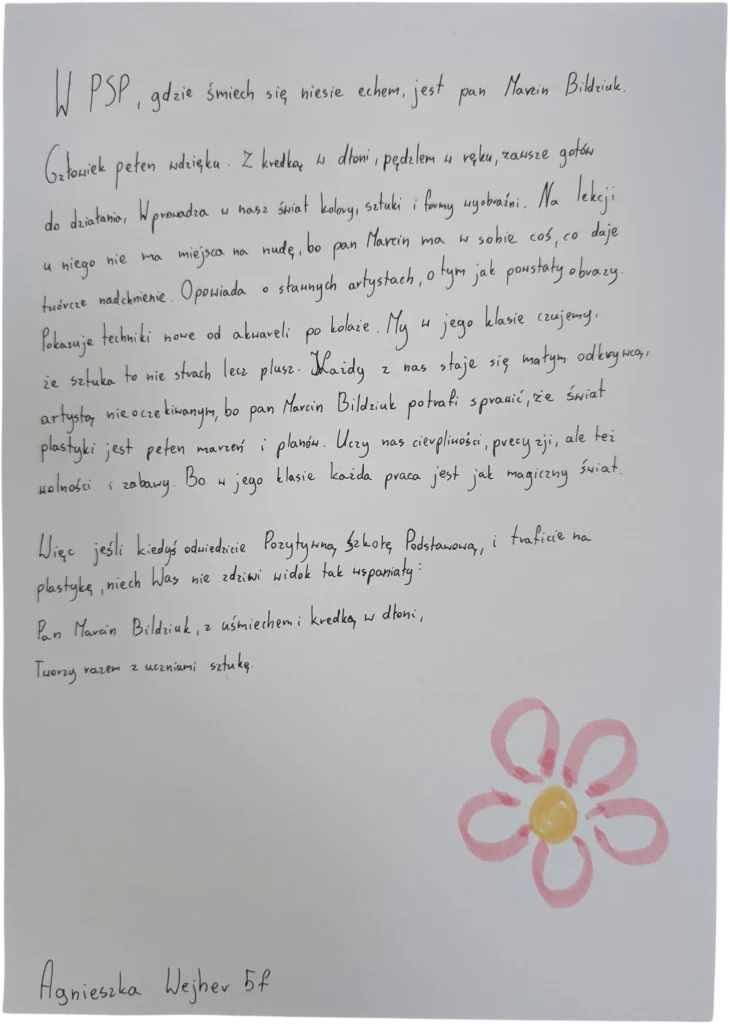 W PSP, gdzie śmiech się niesie echem, jest pan Marcin Bildziuk.
Człowiek pełen wdzięku. Z kredką w dłoni, pędzlem w ręku, zawsze gotów
do działania, Wprowadza w nasz świat kolory, sztuki i formy wyobraźni. Na lekcji
u niego nie ma miejsca na nudę, bo pan Marcin ma w sobie coś, co daje
twórcze nadchnienie. Opowiada o sławnych artystach, o tym jak powstały obrazy.
Pokazuje techniki nowe od akwareli po kolaże. My w jego klasie czujemy,
że sztuka to nie strach lecz plusz. Każdy z nas staje się małym odkrywcą,
artystą nieoczekiwanym, bo pan Marcin Bildziuk potrafi sprawić, że świat
plastyki jest pełen marzeń i planów. Uczy nas cierpliwości, precyzji, ale też
wolności i zabawy. Bo w jego klasie każda praca jest jak magiczny świat.
Więc jeśli kiedyś odwiedzicie Pozytywną Szkołę Podstawową, i traficie na
plastykę, niech Was nie zdziwi widok tak wspaniały:
Pan Marcin Bildziuk, z uśmiechem i kredką w dłoni,
Tworzy razem z uczniami sztukę.
Agnieszka Wejher 5f